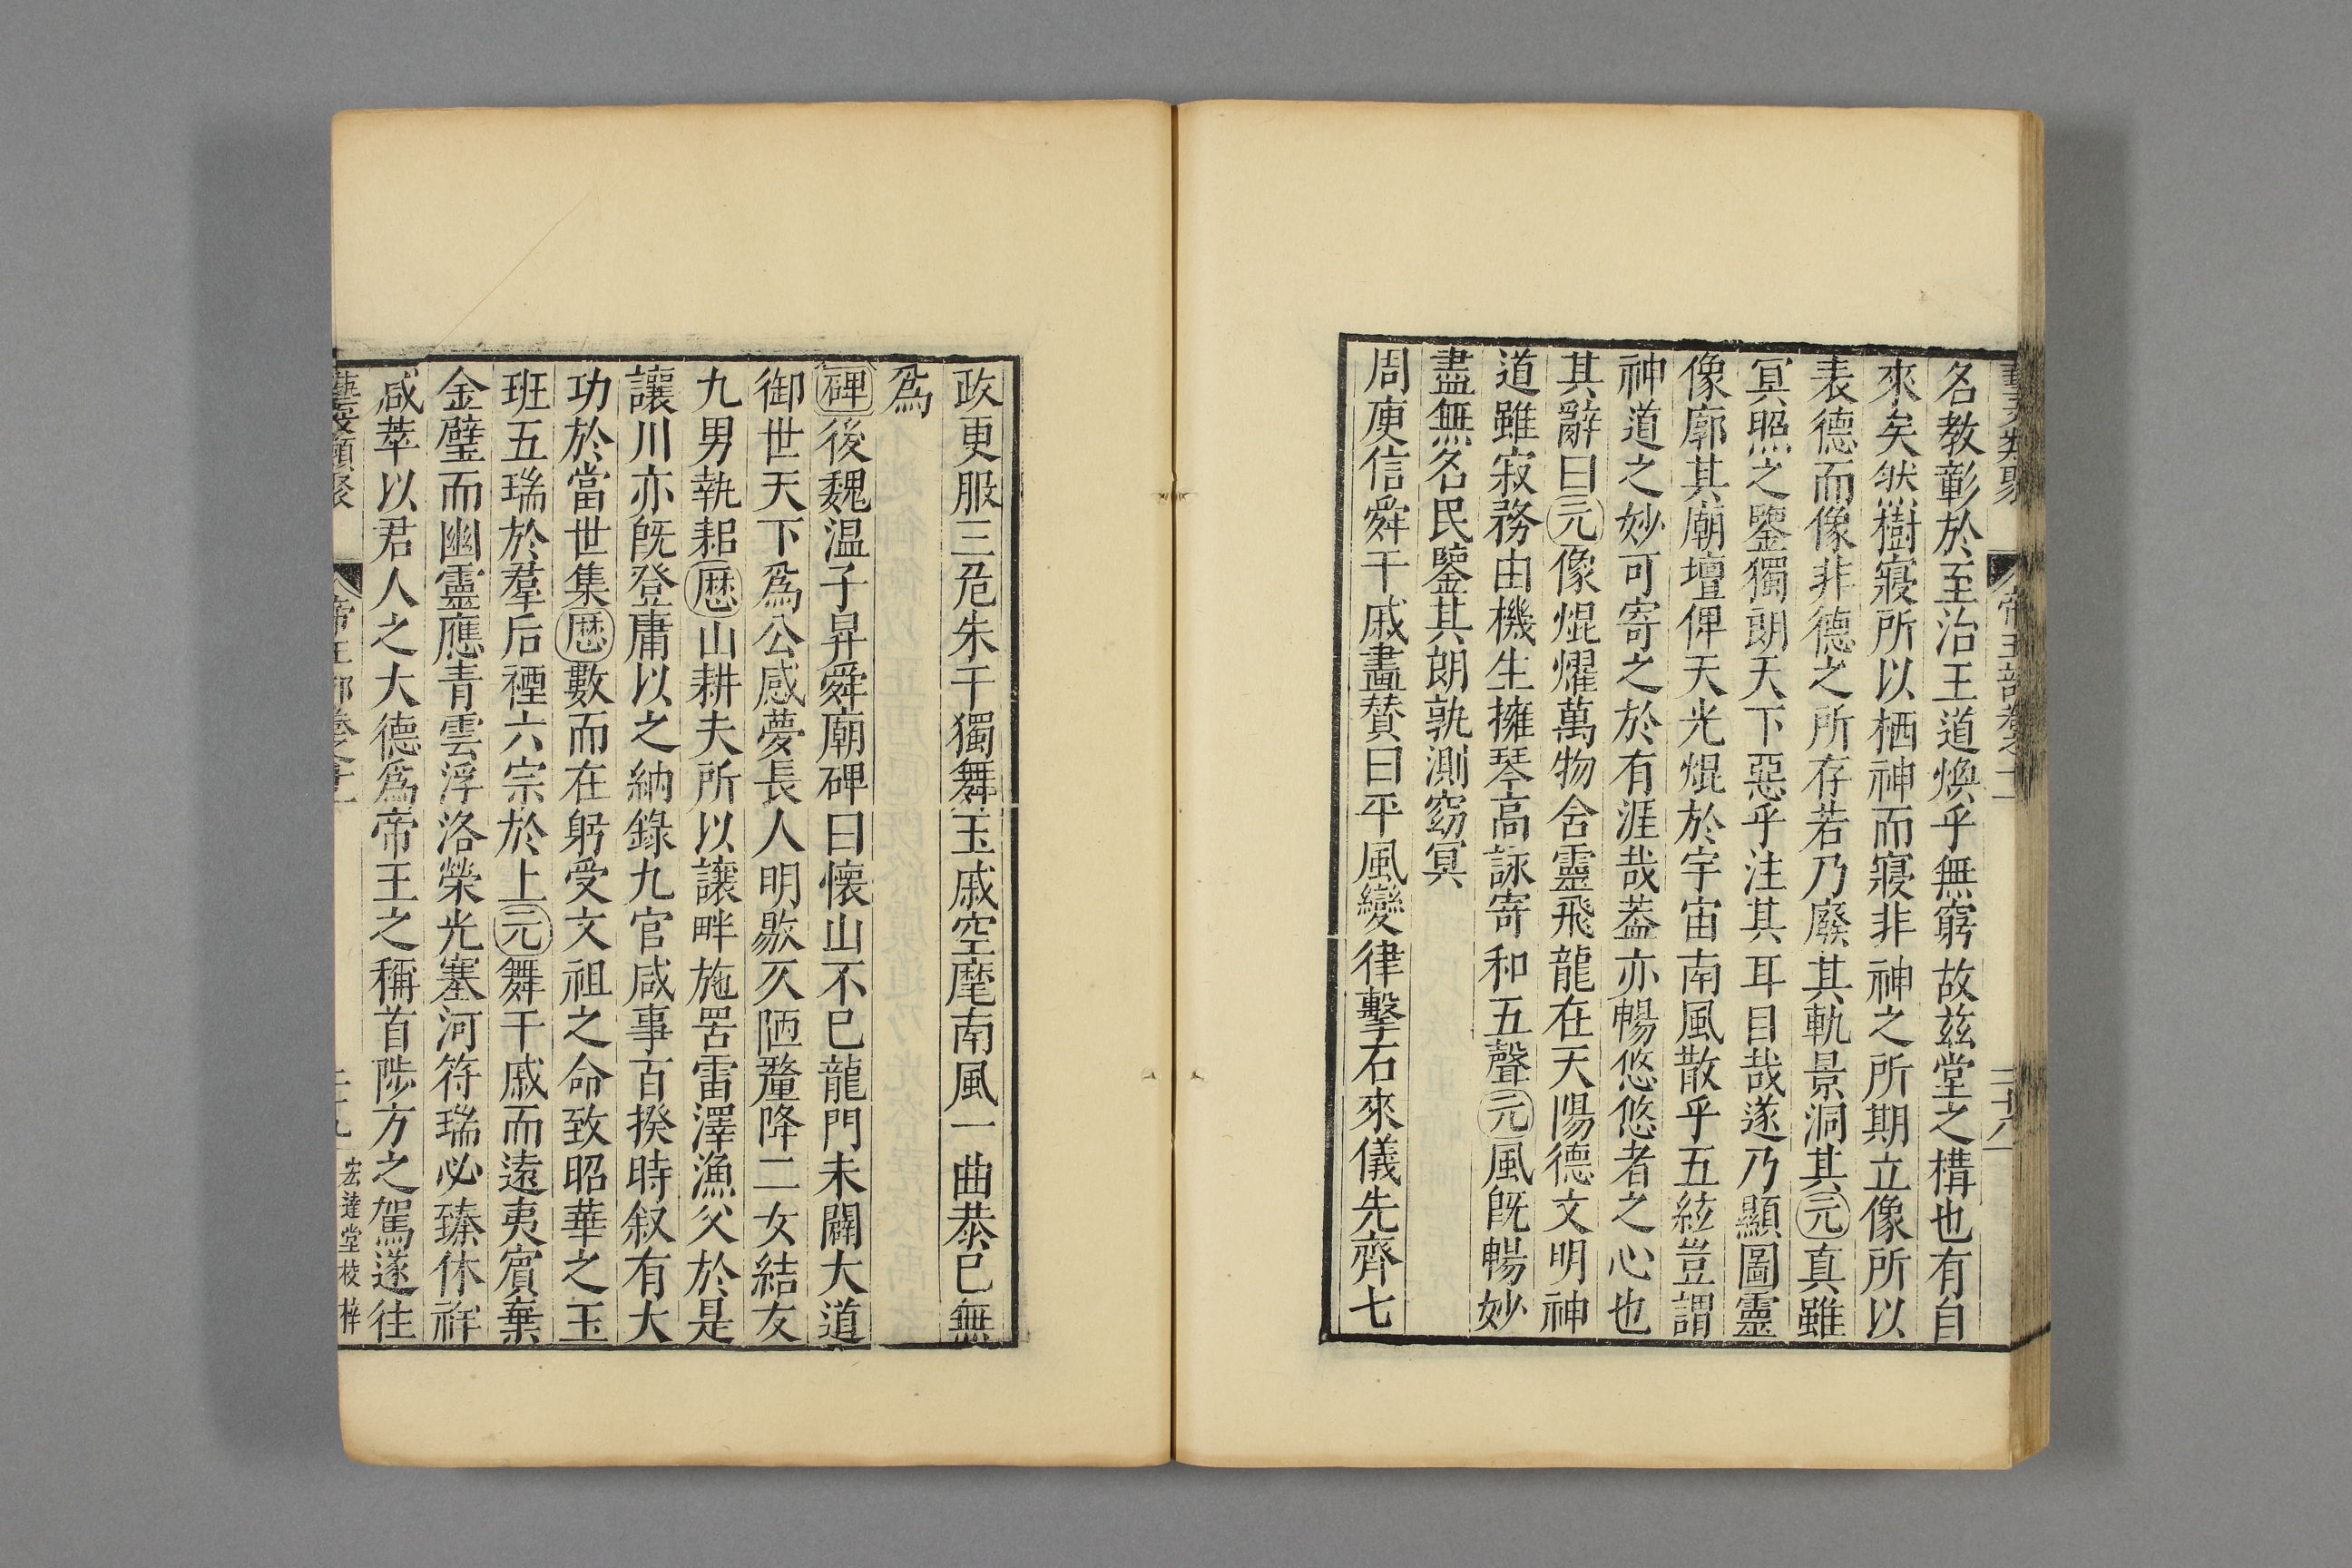 藝文類聚 帝王部卷之十一 二十八
名教彰於至治王道煥乎無窮故茲堂之構也有自
來矣然樹寢所以栖神而寢非神之所期立像所以
表德而像非德之所存若乃廢其軌景洞其元真雖
冥照之鑒獨朗天下惡乎注其耳目哉遂乃顯圖靈
像廓其廟壇俾天光焜於宇宙南風散乎五絃豈謂
神道之妙可寄之於有涯哉葢亦暢悠悠者之心也
其辭曰元像焜燿萬物舍靈飛龍在天陽德文明神
道雖寂務由機生擁琴高詠寄和五聲元風旣暢妙
盡無名民鑒其朗孰測窈冥
周庾信舜干戚畫贊曰平風變律擊石來儀先齊七
政更服三危朱干獨舞玉戚空麾南風一曲恭已無
爲
碑後魏温子昇舜廟碑曰懷山不已龍門未闢大道
御世天下爲公感夢長人明敭仄陋釐降二女結友
九男執耜厯山耕夫所以讓畔施罟雷澤漁父於是
讓川亦旣登庸以之納錄九官咸事百揆時叙有大
功於當世集厯數而在躬受文祖之命致昭華之玉
班五瑞於羣后禋六宗於上元舞干戚而遠夷賓棄
金璧而幽靈應青雲浮洛榮光塞河符瑞必臻休祥
咸萃以君人之大德爲帝王之稱首陟方之駕遂往
藝文類聚 帝王部卷之十一 二十九 宏達堂校梓